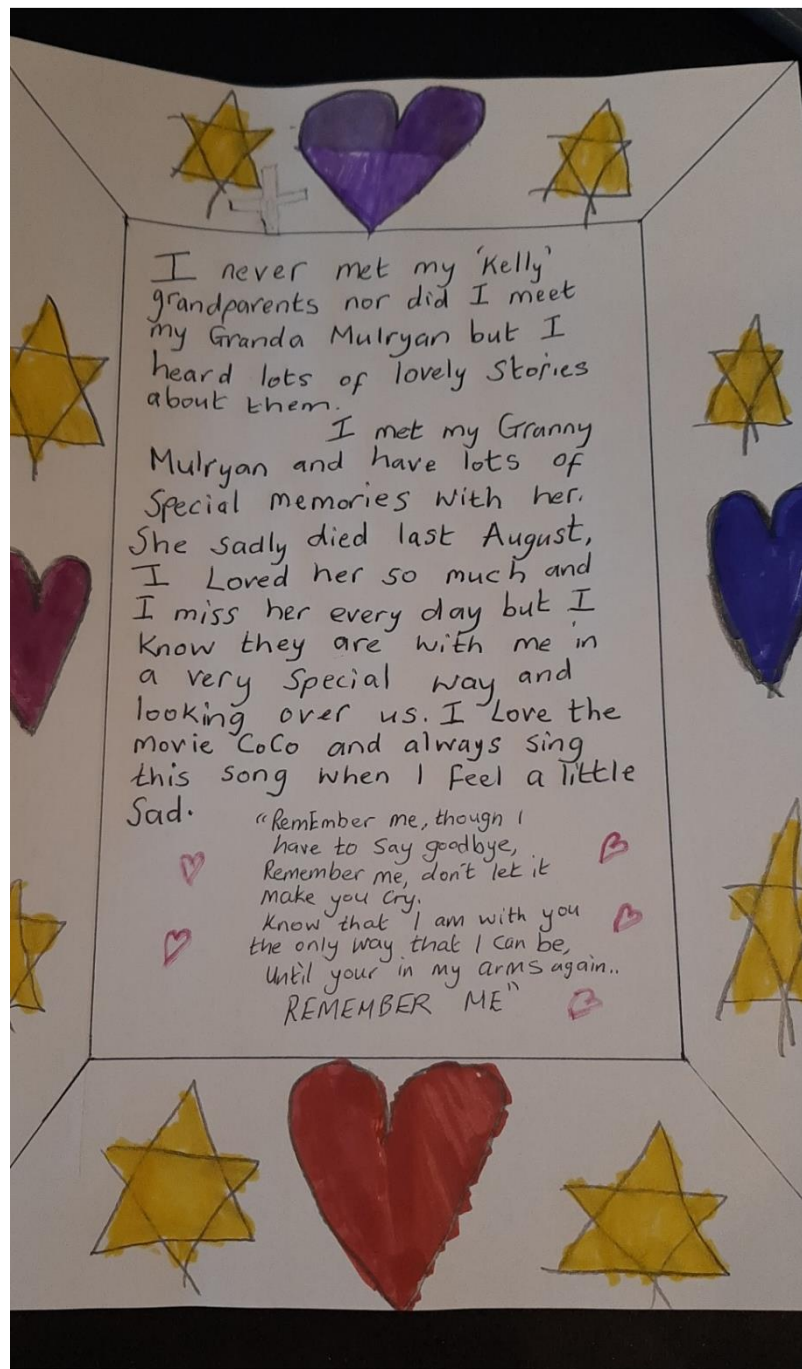 I never met my 'Kelly'
grandparents nor did I meet
my Granda Mulryan but I
heard lots of lovely Stories
about them.
I met my Granny
Mulryan and have lots of
Special memories with her.
She sadly died last August,
I Loved her so much and
I miss her every day but I
know they are with me in
a very special way and
looking over us. I Love the
movie CoCo and always sing
this song when I feel a little
Sad.
"RemEmber me, though I
have to say goodbye,
Remember me, don't let it
make you cry.
Know that I am with you
the only way that I can be,
Until your in my arms again..
REMEMBER ME"